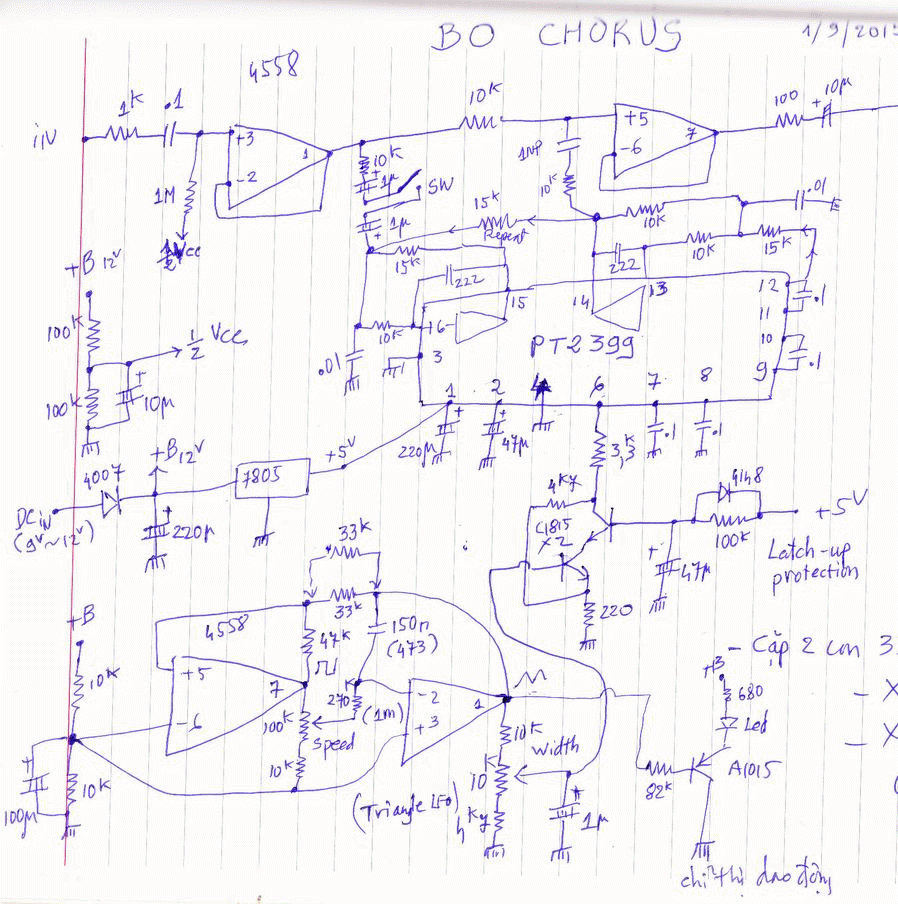 BO CHORUS
1/9/2013
4558
iN
1K
.1
+3
-2
1
1M
½Vcc
10K
+5
-6
7
100
+ 10µ
10K
+
1µ
SW
+
1µ
1NP
10K
15K
Repeat
10K
.01
222
10K
15K
15K
222
15
14
13
12
.1
11
10
9
.1
10K
16
3
.01
PT2399
+B 12V
100K
½ Vcc
100K
+
10µ
1
2
4
6
7
8
+
220µ
+
47µ
.1
.1
3,3K
4007
+B12V
7805
+5V
DCiN
(9V~12V)
+
220µ
4K7
C1815
X2
220
4148
100K
+5V
+
47µ
Latch-up
protection
33K
33K
150n
(473)
+B
10K
4558
+5
-6
7
47K
270K
(1m)
100K
Speed
10K
-2
+3
1
+
100µ
10K
(Triangle LFO)
10K
10K
Width
4K7
+
1µ
82K
+B
680
Led
A1015
chỉ thị dao động
- Cặp 2 con 3.
- X
- X